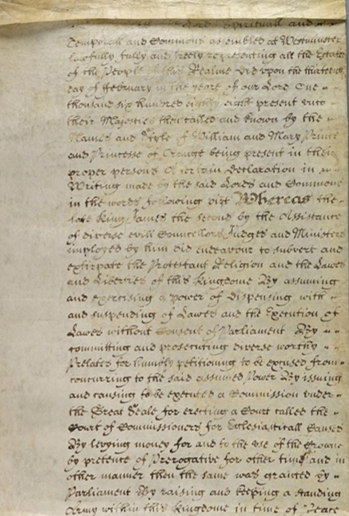 Lords Spirituall and
Temporall and Commons assembled at Westminster
lawfully fully and freely representing all the Estates
of the People of this Realme did upon the thirteenth
day of February in the yeare of our Lord One
thousand six hundred eighty eight present unto
their Majesties then called and known by the
Names and Stile of William and Mary Prince
and Princesse of Orange being present in their
proper persons a certain Declaration in
Writing made by the said Lords and Commons
in the words following vizt Whereas the
late King James the second by the Assistance
of diverse evill Councellors Judges and Ministers
imployed by him did endeavour to subvert and
extirpate the Protestant Religion and the Lawes
and Liberties of this Kingdome By assuming
and exercising a power of Dispensing with
and suspending of Lawes and the Execution of
Lawes without Consent of Parliament By
committing and prosecuting diverse worthy
Prelates for humbly petitioning to be excused from
concurring to the said assumed Power By issuing
and causing to be executed a Commission under
the Great Seale for erecting a Court called the
Court of Commissioners for Ecclesiasticall Causes
By levying money for and to the use of the Crowne
by pretence of Prerogative for other time and in
other manner then the same was granted by
Parliament By raising and keeping a standing
Army within this Kingdome in time of Peace